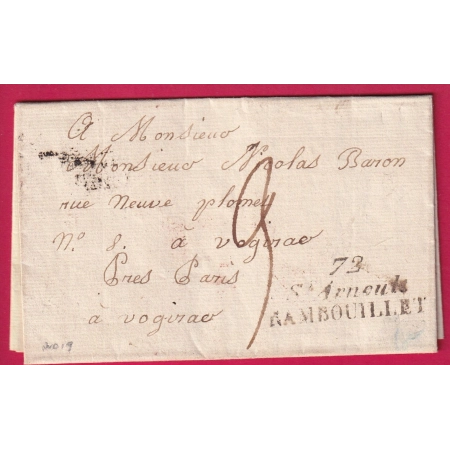 A Monsieur
Monsieur Nicolas Baron
rue neuve plomet
N° 8. à vogirar
Pres Paris
à vogirar
9
72
St Arnoult
RAMBOUILLET